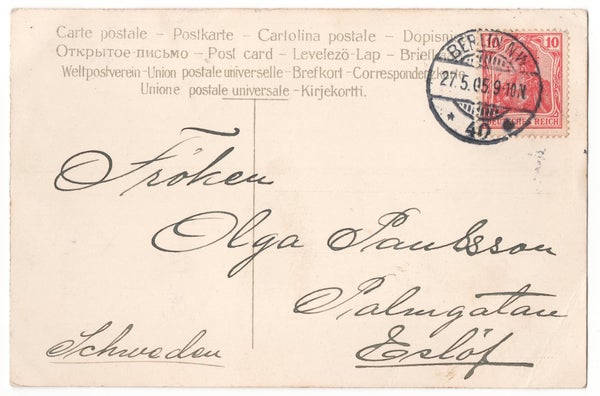 Carte postale – Postkarte – Cartolina postale – Dopisni
Открытое-письмо – Post card – Levelezö-Lap – Briefk
Weltpostverein-Union postale universelle-Brefkort-Correspondenzk
Unione postale universale-Kirjekortti.
BERLIN N.W.
27.5.05.9-10N.
* 40
10
DEUTSCHES REICH
Fröken
Olga Paulsson
Palmgatan
Schweden
Eslöf